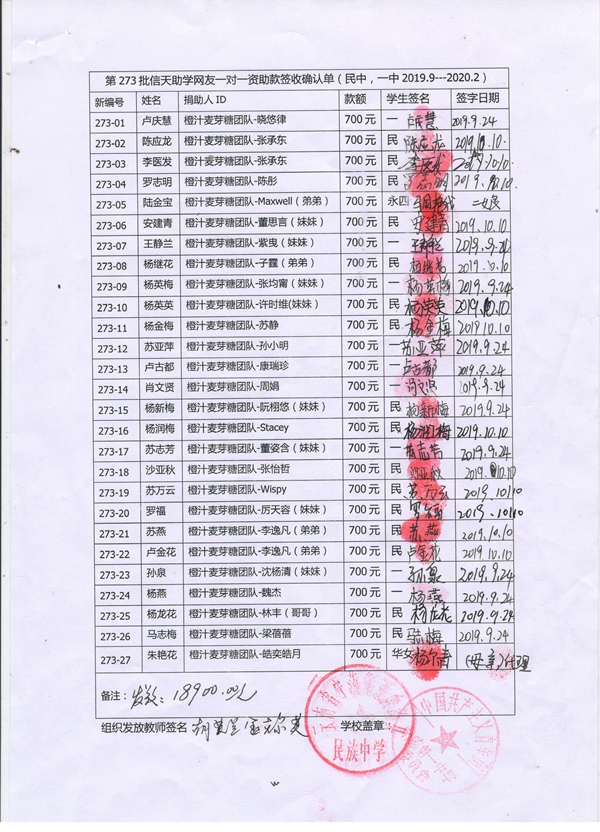 第 273 批信天助学网友一对一资助款签收确认单（民中，一中 2019.9---2020.2）
新编号 姓名 捐助人 ID 款额 学生签名 签字日期
273-01 卢庆慧 橙汁麦芽糖团队-晓悠律 700 元 一 2019.9.24
273-02 陈应龙 橙汁麦芽糖团队-张承东 700 元 民 陈应龙 2019.10.10
273-03 李医发 橙汁麦芽糖团队-张承东 700 元 民 李医发
273-04 罗志明 橙汁麦芽糖团队-陈彤 700 元 民
273-05 陆金宝 橙汁麦芽糖团队-Maxwell（弟弟） 700 元 永四
273-06 安建青 橙汁麦芽糖团队-董思言（妹妹） 700 元 民 安建青 2019.10.10
273-07 王静兰 橙汁麦芽糖团队-紫曳（妹妹） 700 元 一
273-08 杨继花 橙汁麦芽糖团队-子霆（弟弟） 700 元 民 2019.10.10
273-09 杨英梅 橙汁麦芽糖团队-张均甯（妹妹） 700 元 一 杨英梅 2019.9.24
273-10 杨英英 橙汁麦芽糖团队-许时维(妹妹） 700 元 民 杨英英 2019.10.10
273-11 杨金梅 橙汁麦芽糖团队-苏静 700 元 民 杨金梅 2019.10.10
273-12 苏亚萍 橙汁麦芽糖团队-孙小明 700 元 一 苏亚萍 2019.9.24
273-13 卢古都 橙汁麦芽糖团队-康瑞珍 700 元 一 卢古都 2019.9.24
273-14 肖文贤 橙汁麦芽糖团队-周娟 700 元 一 2019.9.24
273-15 杨新梅 橙汁麦芽糖团队-阮栩悠（妹妹） 700 元 民 杨新梅 2019.9.24
273-16 杨润梅 橙汁麦芽糖团队-Stacey 700 元 民 杨润梅 2019.10.10
273-17 苏志芳 橙汁麦芽糖团队-董姿含（妹妹） 700 元 一 苏志芳 2019.9.24
273-18 沙亚秋 橙汁麦芽糖团队-张怡哲 700 元 民 沙亚秋 2019.10.10
273-19 苏万云 橙汁麦芽糖团队-Wispy 700 元 民 苏万云 2019.10.10
273-20 罗福 橙汁麦芽糖团队-厉天容（妹妹） 700 元 民 罗福 2019.10.10
273-21 苏燕 橙汁麦芽糖团队-李逸凡（弟弟） 700 元 民 苏燕 2019.10.10
273-22 卢金花 橙汁麦芽糖团队-李逸凡（弟弟） 700 元 民 卢金花 2019.10.10
273-23 孙泉 橙汁麦芽糖团队-沈杨清（妹妹） 700 元 一 孙泉 2019.9.24
273-24 杨燕 橙汁麦芽糖团队-魏杰 700 元 一 杨燕 2019.9.24
273-25 杨龙花 橙汁麦芽糖团队-林丰（哥哥） 700 元 民 杨龙花 2019.9.24
273-26 马志梅 橙汁麦芽糖团队-梁蓓蓓 700 元 民 2019.9.24
273-27 朱艳花 橙汁麦芽糖团队-皓奕皓月 700 元 华女 (母亲)代理
备注：发放：18900.00元
组织发放教师签名 学校盖章：
民族中学